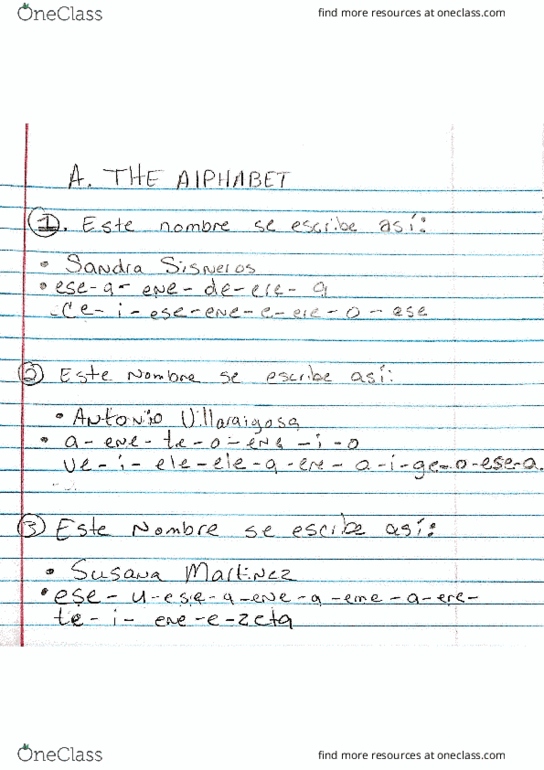 OneClass
find more resources at oneclass.com
A. THE AlPHABET
1. Este nombre se escribe así:
• Sandra Sisneros
• ese-a-ene-de-ere-a
Ce-i-ese-ene-e-ere-o-ese
2 Este Nombre se escribe así:
• Antonio Villaraigosa
• a-ene-te-o-ene-i-o
Ve-i-ele-ele-a-ere-a-i-ge-o-ese-a.
3 Este Nombre se escribe así:
• Susana Martinez
• ese-u-ese-a-ene-a-eme-a-ere-
te-i-ene-e-zeta
OneClass
find more resources at oneclass.com